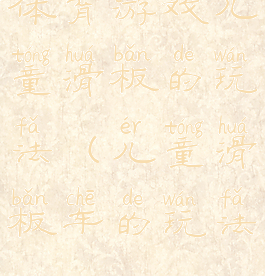 体育游戏儿
tóng huá bǎn de wán
童滑板的玩
fǎ ér tóng huá
法（儿童滑
bǎn chē de wán fǎ
板车的玩法